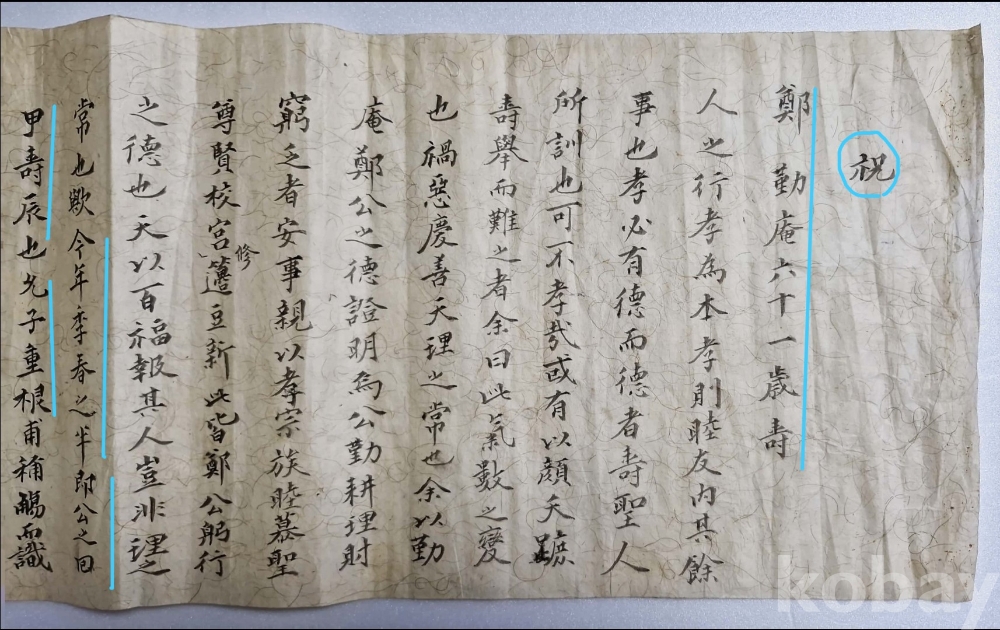 祝
鄭勤庵六十一歲壽
人之行孝為本孝則睦友內其餘
事也孝必有德而德者壽聖人
所訓也可不孝哉或有以顔夭蹠
壽舉而難之者余曰此氣數之變
也禍惡慶善天理之常也余以勤
庵鄭公之德證明焉公勤耕理財
窮乏者安事親以孝宗族睦慕聖
尊賢校宮修籩豆新此皆鄭公躬行
之德也天以百福報其人豈非理之
常也歟今年季春之半即公之回
甲壽辰也允子重根甫稱觴而識
kobay